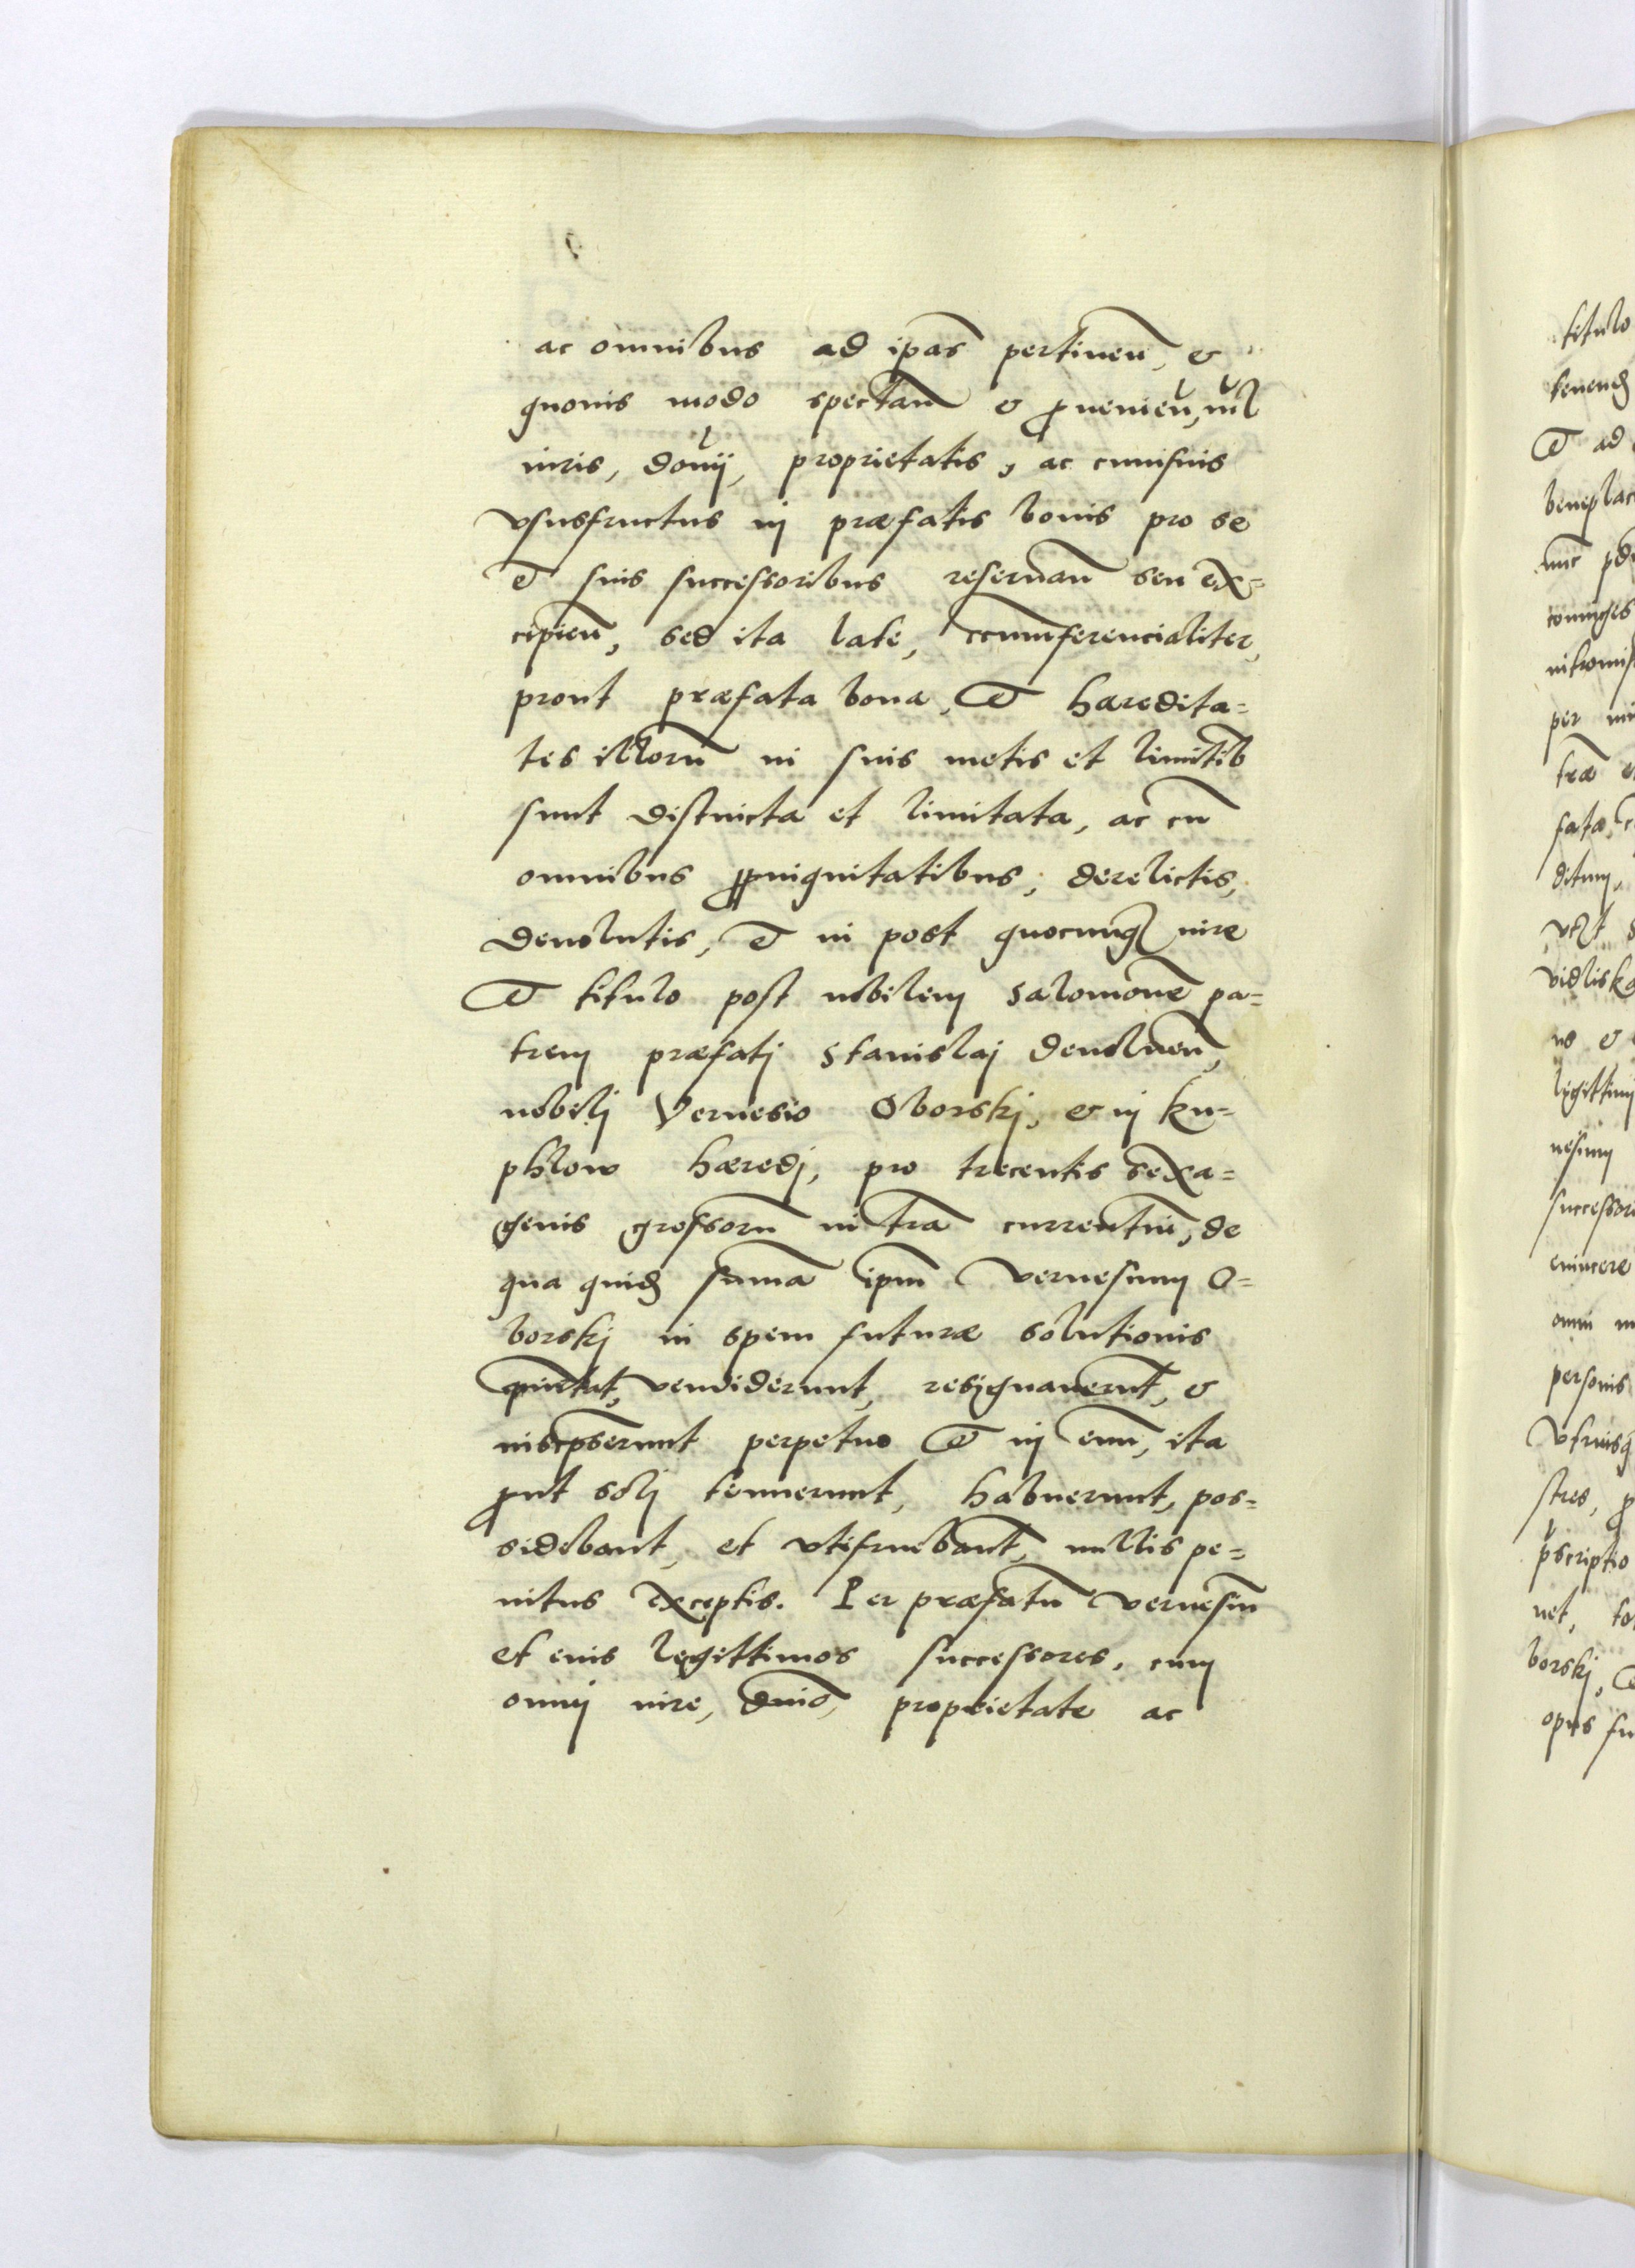 ac omnibus ad ipas pertinen, &
quouis modo spectan & ꝓuenien, nil
iuris, donij, proprietatis, ac cuiusuis
vsusfructus in præfatis bonis pro se
et suis successoribus reseruan seu ex=
cipien, sed ita late, circumferencialiter,
prout præfata bona, et hæredita=
tes illoru in suis metis et limitib
sunt distincta et limitata, ac cu
omnibus ꝓpinquitatibus, derelictis,
deuolutis, et in post quocunq iure
et titulo post nobilem Salomone pa=
trem præfatj Stanislaj deuoluen,
nobilj Vernesio Oborskj, & in ku=
phlow hæredj, pro trecentis sexa=
genis grossoru in tra currentiu, de
qua quid suma ipm vernesium O=
borskj in spem futuræ solutionis
quietat, vendiderunt, resignauerut, &
inscpserunt perpetuo et in euu, ita
ꝓut solj tenuerunt, habuerunt, pos=
sidebant, et vtifruebant, nullis pe=
nitus exceptis. Per præfatu vernesiu
et eius legittimos successores, cum
omnj iure, dnio, proprietate ac
titulo
tenend
et ad
beneplac
nuc
coniuges
intromis
per
træ
fatæ,
ditum,
vidlisk
no &
legittim
nesium
successor
euincere
omni
personis
stres,
pscriptio
net,
borskj,
opus